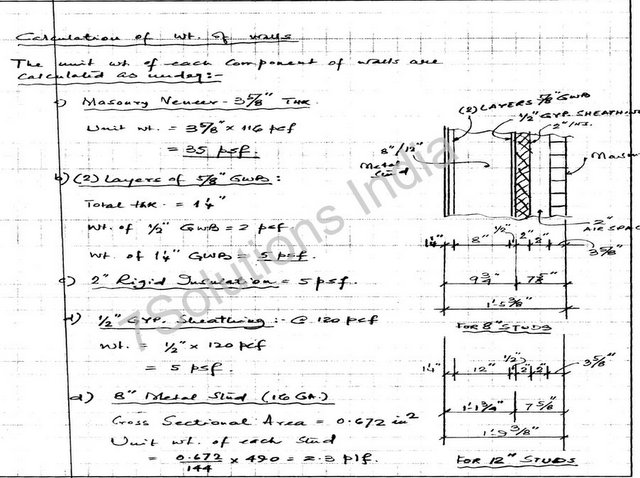 Calculation of wt. of walls
The unit wt. of each component of walls are
calculated as under:-
a) Masonry Veneer - 3 5/8" Thk.
Unit wt. = 3 5/8" x 116 pcf
= 35 psf.
b) (2) Layers of 5/8" GWB :
Total thk. = 1 1/4"
Wt. of 1/2" GWB = 2 psf
Wt. of 1 1/4" GWB = 5 psf.
c) 2" Rigid Insulation = 5 psf.
d) 1/2" GYP. Sheathing :- @ 120 pcf
Wt. = 1/2" x 120 pcf
= 5 psf.
d) 8" Metal Stud (16 GA.)
Cross Sectional Area = 0.672 in2
Unit wt. of each stud
= 0.672/144 x 490 = 2.3 plf.
(2) LAYERS 5/8" GWB
1/2" GYP. SHEATHING
2" INS.
8"/12"
Metal
Stud
2"
AIR SPACE
1 1/4" 8" 1/2" 2" 2" 3 5/8"
9 3/4" 7 5/8"
1'-5 3/8"
FOR 8" STUDS
1 1/4" 12" 1/2" 2" 2" 3 5/8"
1'-1 3/4" 7 5/8"
1'-9 3/8"
FOR 12" STUDS
7Solutions India